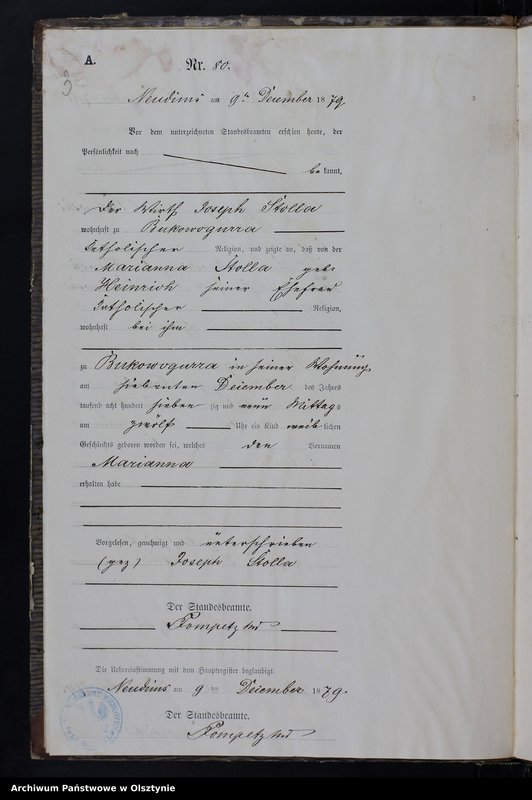 A.
3
Nr. 80.
Neudims am 9ten December 1879.
Vor dem unterzeichneten Standesbeamten erschien heute, der
Persönlichkeit nach
bekannt,
Der Wirth Joseph Stolla
wohnhaft zu Bukowogurra
katholischer Religion, und zeigte an, daß von der
Marianna Stolla geb:
Heinrich seiner Ehefrau
katholischer Religion,
wohnhaft bei ihm
zu Bukowogurra in seiner Wohnung
am siebenten Deiember des Jahres
tausend acht hundert siebenzig und neun Mittags
um zwölf Uhr ein Kind weiblichen
Geschlechts geboren worden sei, welches den Vornamen
Marianna
erhalten habe
Vorgelesen, genehmigt und unterschrieben
(gez) Joseph Stolla
Der Standesbeamte.
Pompetzki
Die Uebereinstimmung mit dem Hauptregister beglaubigt.
Neudims am 9 ten Deiember 1879.
Der Standesbeamte.
Pompetzki
Archiwum Państwowe w Olsztynie